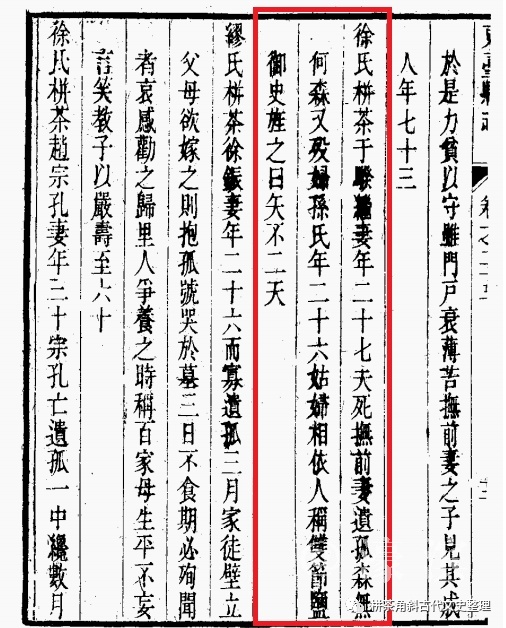 東臺縣志 卷之二
於是力貧以守雖門戶衰薄苦撫前妻之子見其成
人年七十三
徐氏栟茶于妻年二十七夫死撫前妻遺孤森無
何森又歿婦孫氏年二十六姑婦相依人稱雙節鹽
御史旌之曰矢不二天
繆氏栟茶徐妻年二十六而寡遺孤三月家徒壁立
父母欲嫁之則抱孤號哭於墓三日不食期必殉聞
者哀感勸之歸里人爭養之時稱百家母生平不妄
言笑教子以嚴壽至六十
徐氏栟茶趙宗孔妻年三十宗孔亡遺孤一中纔數月
栟茶角斜古代文史整理